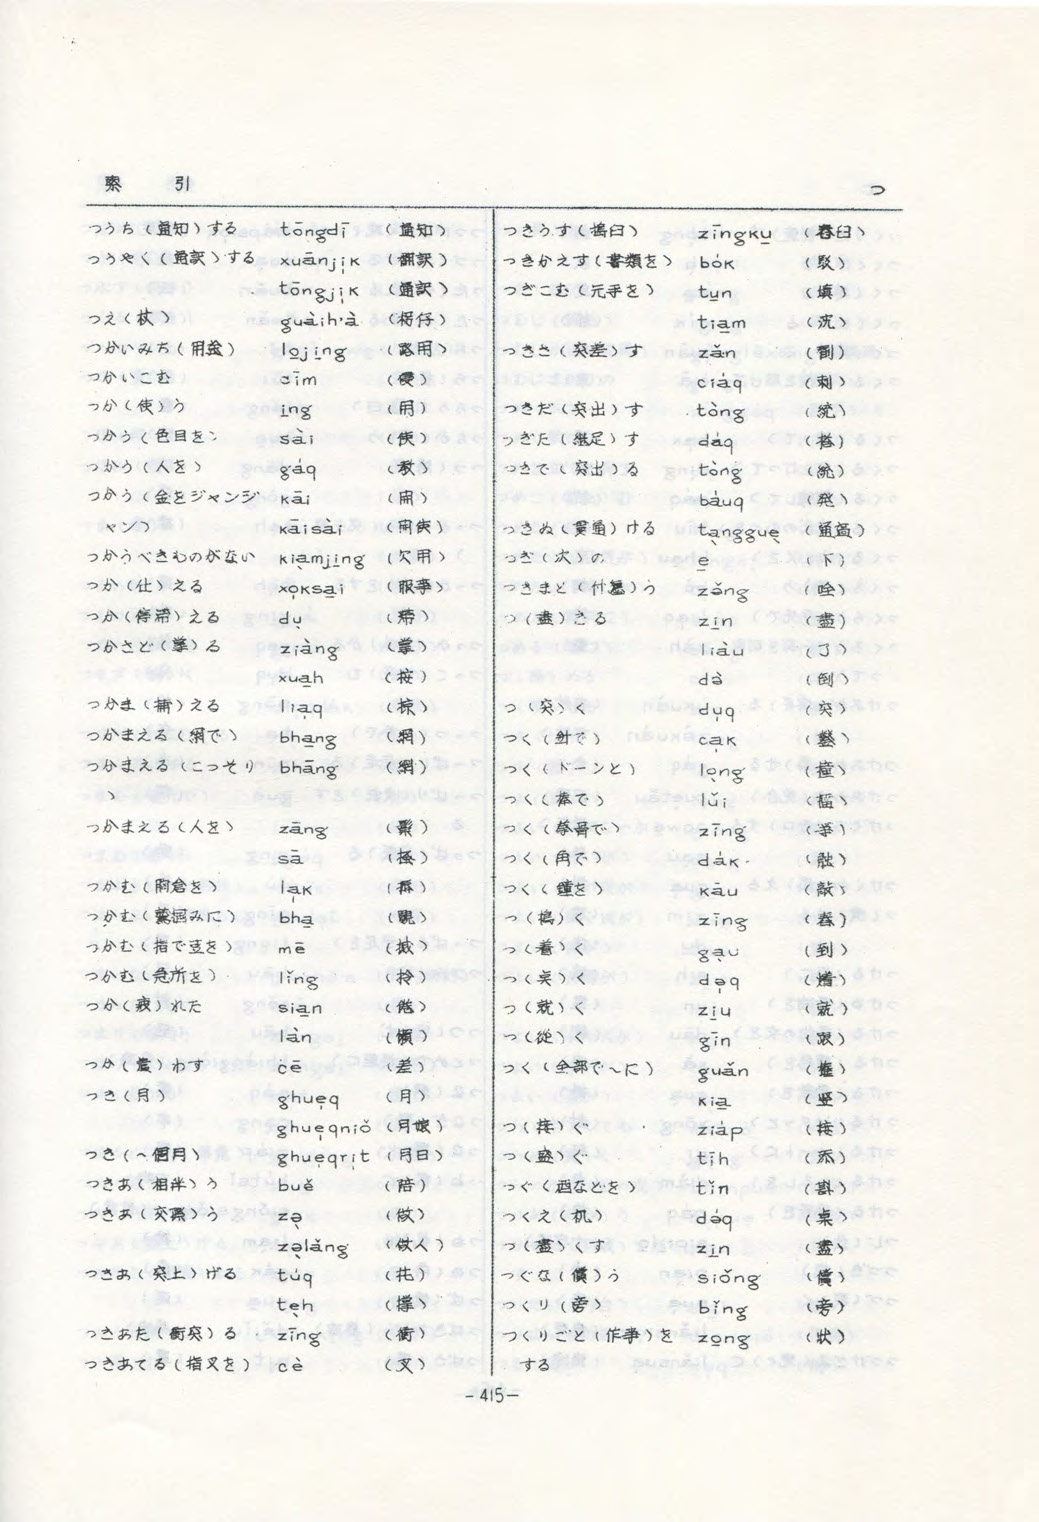 索 引
つ
つうち(通知)する tōngdī (通知)
つうやく(通訳)する xuānji̍k (翻訳)
tōngji̍k (通訳)
つえ(杖) guàih'à (枴仔)
つかいみち(用途) lo̲ji̲ng (路用)
つかいこむ cīm (侵)
つか(使)う i̲ng (用)
つかう(色目を) sài (使)
つかう(人を) gáq (教)
つかう(金をジャンジ kāi (開)
ャン) kāisài (開使)
つかうべきものがない kia̍mji̲ng (欠用)
つか(仕)える xo̍ksa̲i (服事)
つか(停滞)える dụ (滞)
つかさど(掌)る ziàng (掌)
xua̲h (按)
つかま(捕)える lia̍q (掠)
つかまえる(網で) bha̲ng (網)
つかまえる(こっそり bhāng (網)
)
つかまえる(人を) zāng
sā
つかむ(胸倉を) la̍k
つかむ(鷲掴みに) bha̲
つかむ(指で豆を) mē
つかむ(急所を) lǐng (拎)
つか(疲)れた sia̲n (倦)
làn (懶)
つか(遣)わす cē (差)
つき(月) ghue̍q (月)
ghue̍qniǒ (月娘)
つき(~個月) ghue̍qri̍t (月日)
つきあ(相伴)う buě (陪)
つきあ(交際)う zə̣ (做)
zə̣lǎng (做人)
つきあ(突上)げる túq (托)
te̲h
つきあた(衝突)る zīng (衝)
つきあてる(指叉を) cè (叉)
つきうす(搗臼) zīngku̲ (舂臼)
つきかえす(書類を) bók (駁)
つぎこむ(元手を) tu̲n (填)
tia̲m
つきさ(突差)す zǎn
ciáq (刺)
つきだ(突出)す tòng
つぎた(継足)す dáq
つきで(突出)る tòng
ba̍uq
つきぬ(貫通)ける ta̲nggue̲ (通過)
つぎ(次)の e̲ (下)
つきまと(付纏)う zǎng
つ(盡)きる zi̲n (盡)
liàu (了)
dà (到)
つ(突)く du̍q (突)
つく(針で) ca̍k
つく(ドーンと) lo̲ng (撞)
つく(棒で) lǔi
つく(拳骨で) zīng
つく(角で) dák
つく(鐘を) kāu (敲)
つ(搗)く zīng (舂)
つ(着)く ga̲u (到)
つ(点)く də̍q
つ(就)く zi̲u (就)
つ(従)く gīn (跟)
つく(全部で~に) guǎn
kia̲ (竪)
つ(接)ぐ ziáp (接)
つ(盛)ぐ tīh (添)
つぐ(酒などを) tǐn (斟)
つくえ(机) dóq (桌)
つ(盡)くす zi̲n (盡)
つぐな(償)う siǒng (償)
つくり(旁) bǐng (旁)
つくりごと(作事)を zo̲ng (状)
する
-415-